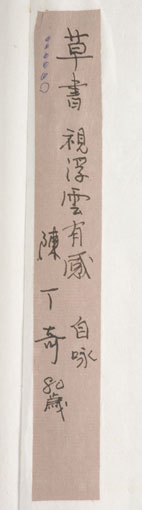 草書 視浮雲有感 自咏
陳丁奇 80歲